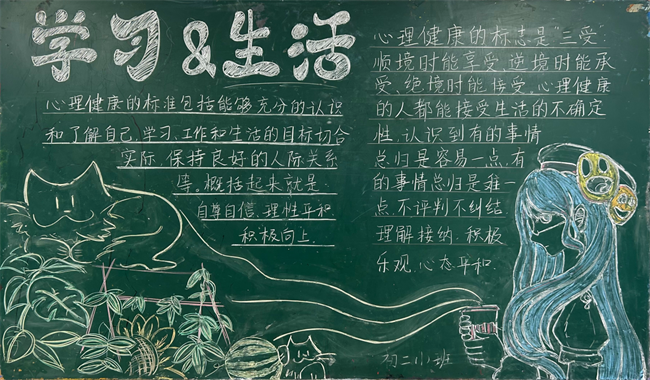 学习&生活
心理健康的标准包括能够充分的认识
和了解自己,学习、工作和生活的目标切合
实际、保持良好的人际关系
等。概括起来就是.
自尊自信、理性平和、
积极向上.
心理健康的标志是"三受"
顺境时能享受,逆境时能承
受、绝境时能接受,心理健康
的人都能接受生活的不确定
性,认识到有的事情
总归是容易一点,有
的事情总归是难一
点,不评判不纠结
理解接纳.积极
乐观,心态平和.
初二小班